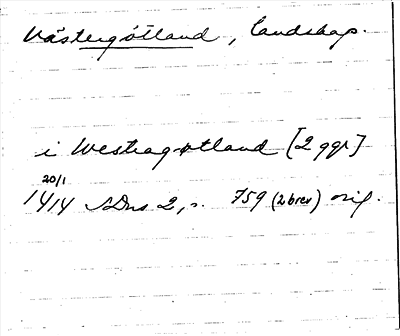 Västergötland, landskap.
i Westragotland [2 ggr]
20/1
1414 SDns 2, s. 759 (2 brev) orig.